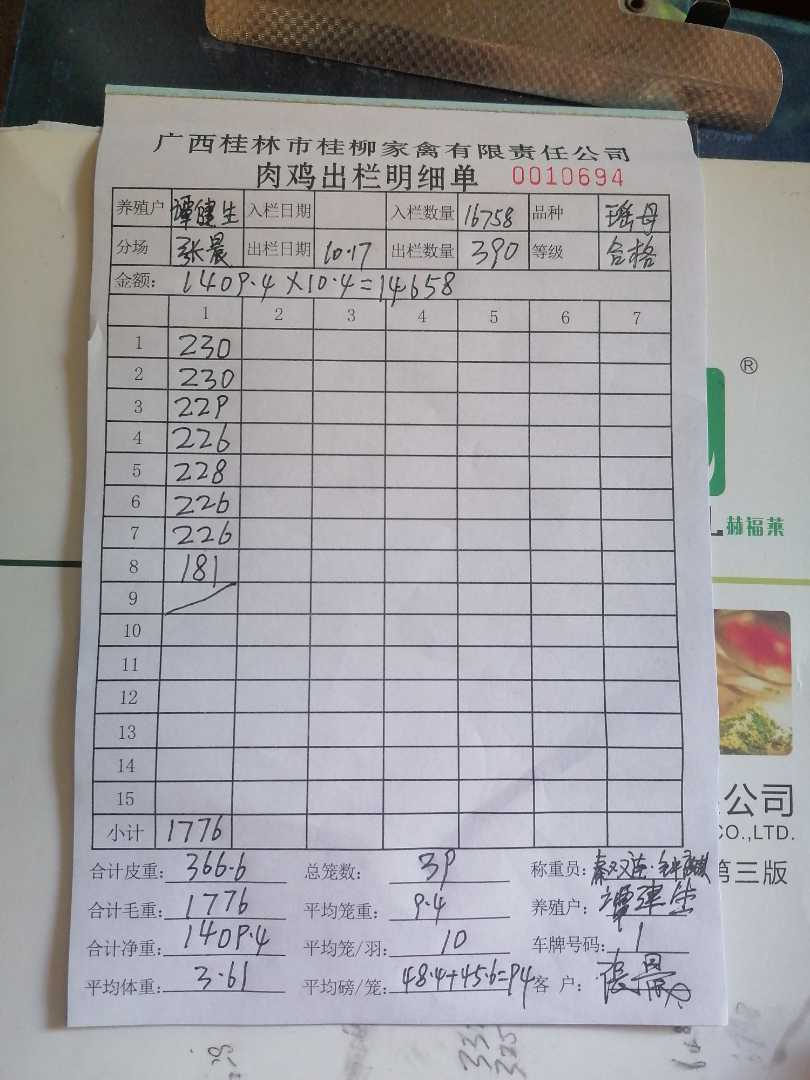 广西桂林市桂柳家禽有限责任公司
肉鸡出栏明细单 0010694
养殖户 谭健生 入栏日期 入栏数量 16758 品种 瑶母
分场 张晨 出栏日期 10·17 出栏数量 390 等级 合格
金额: 1409.4×10.4=14658
1 2 3 4 5 6 7
1 230
2 230
3 229
4 226
5 228
6 226
7 226
8 181
9
10
11
12
13
14
15
小计 1776
合计皮重: 366.6 总笼数: 39 称重员:
合计毛重: 1776 平均笼重: 9.4 养殖户: 谭建生
合计净重: 1409.4 平均笼/羽: 10 车牌号码: 1
平均体重: 3.61 平均磅/笼: 48.4+45.6=94 客 户:
®
赫福莱
公司
CO.,LTD.
第三版